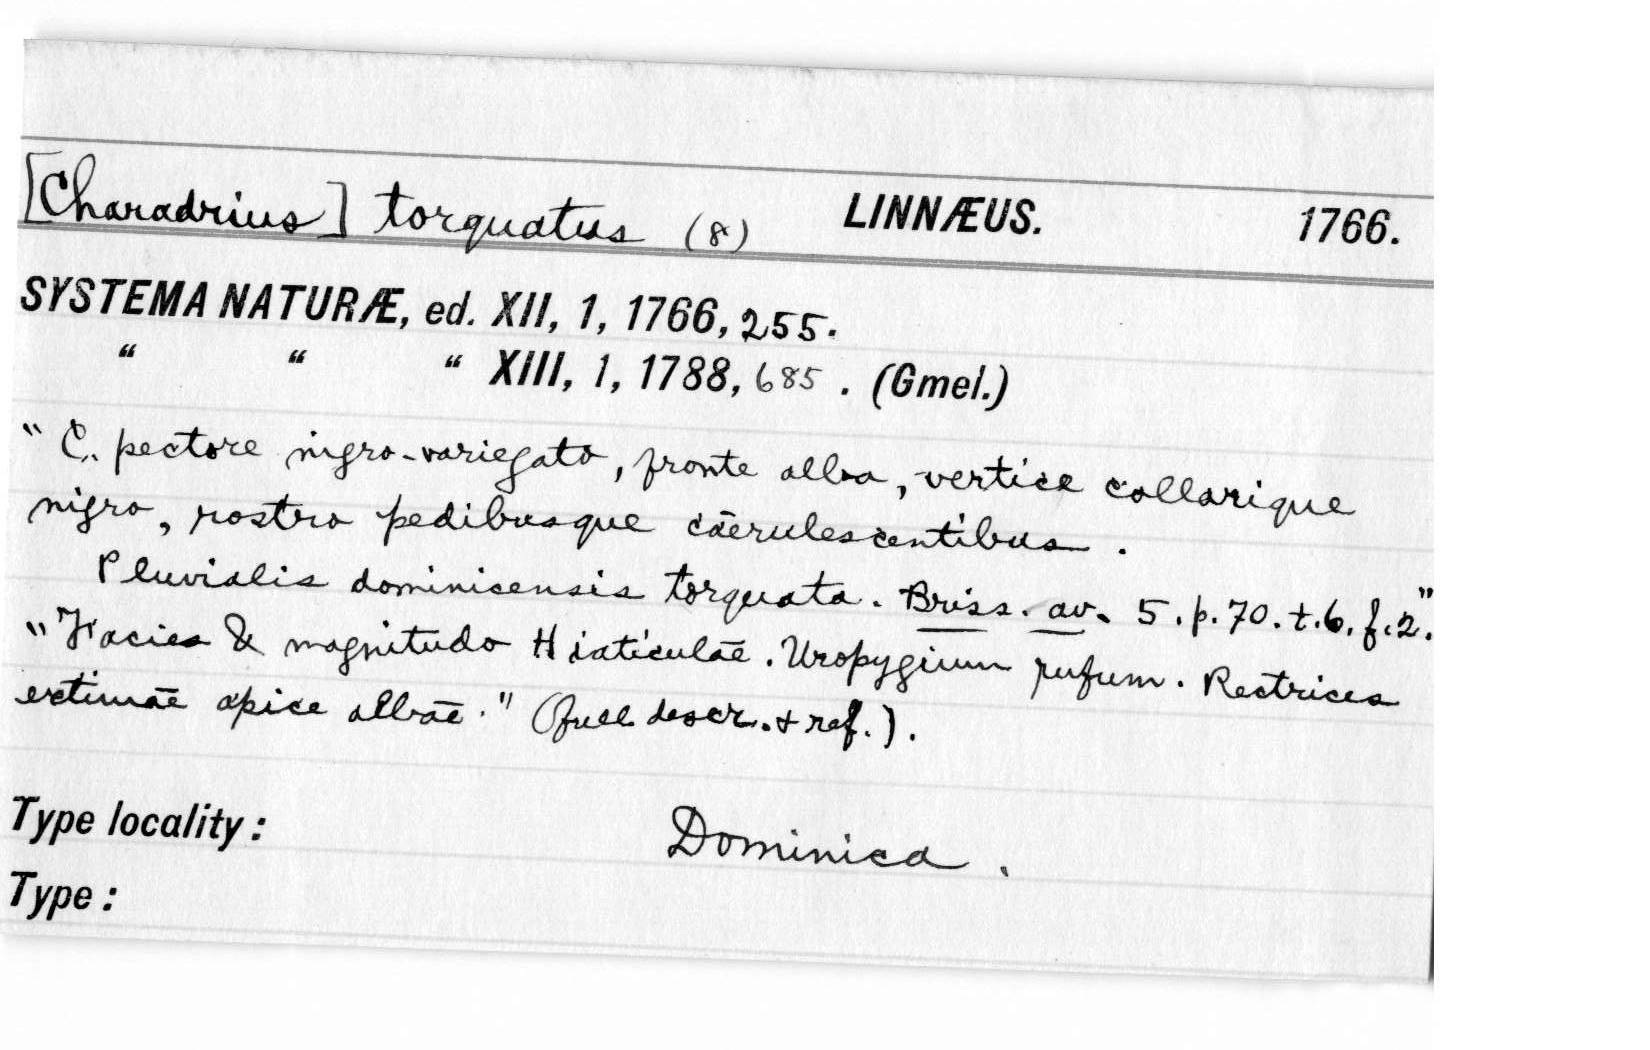 [Charadrius] torquatus (8) LINNÆUS. 1766.
SYSTEMA NATURÆ, ed. XII, 1, 1766, 255.
“ “ “ XIII, 1, 1788, 685. (Gmel.)
"C. pectore nigro-variegato, fronte alba, vertice collarique
nigro, rostro pedibusque cāerulescentibus.
Pluvialis dominicensis torquata. Briss. av. 5. p. 70. t. 6. f. 2."
"Facies & magnitudo Hiaticulāe. Uropygium rufum. Rectrices
extimāe apice albāe." (full descr. + ref.).
Type locality: Dominica.
Type: